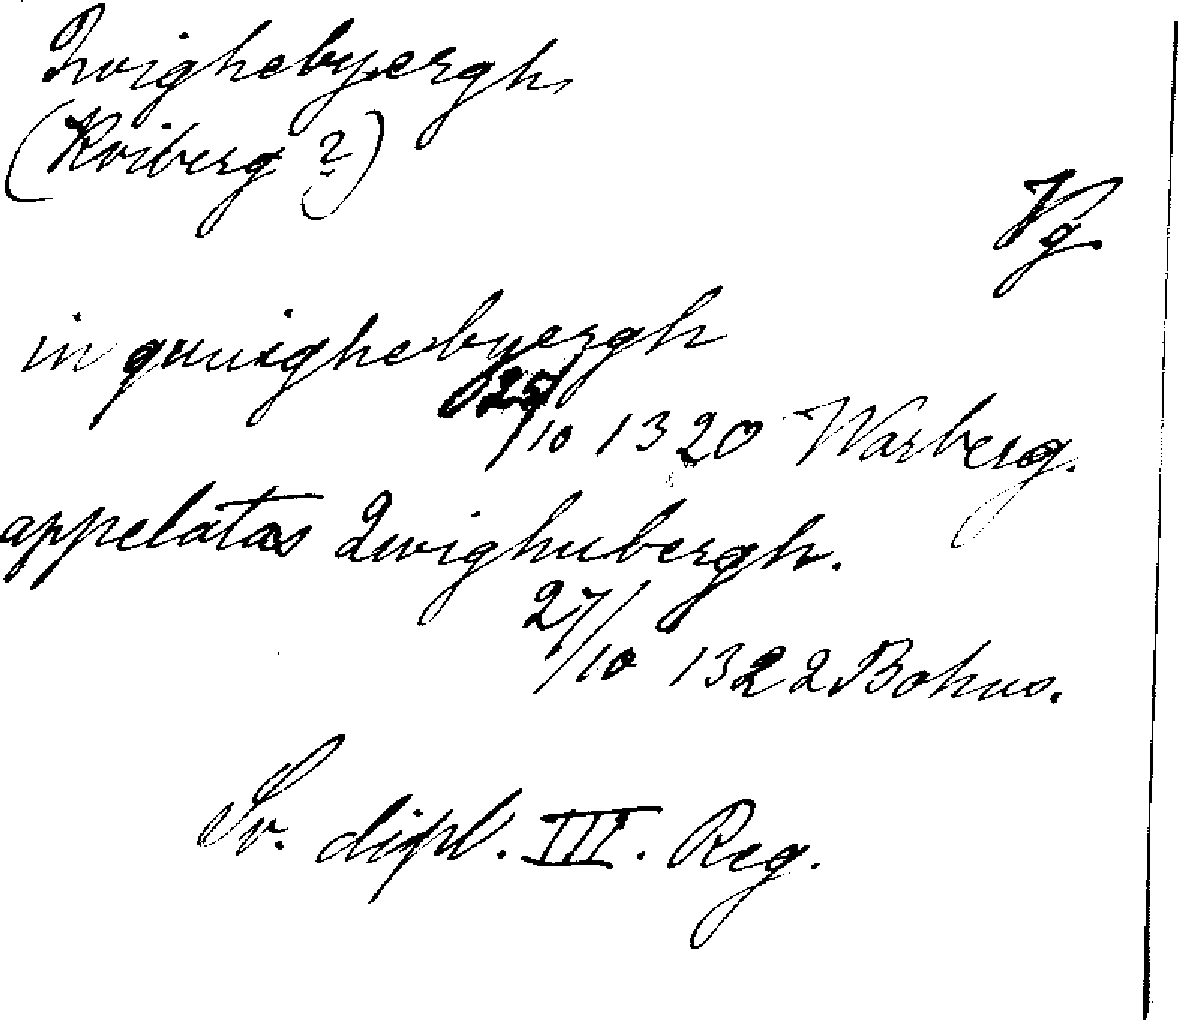 Qvighebyergh
(Kviberg ?)
Vg.
in quuighebyergh
25/10 1320 Warberg.
appelatas Quighubergh.
27/10 1322 Bohus.
Sv. dipl. III. Reg.